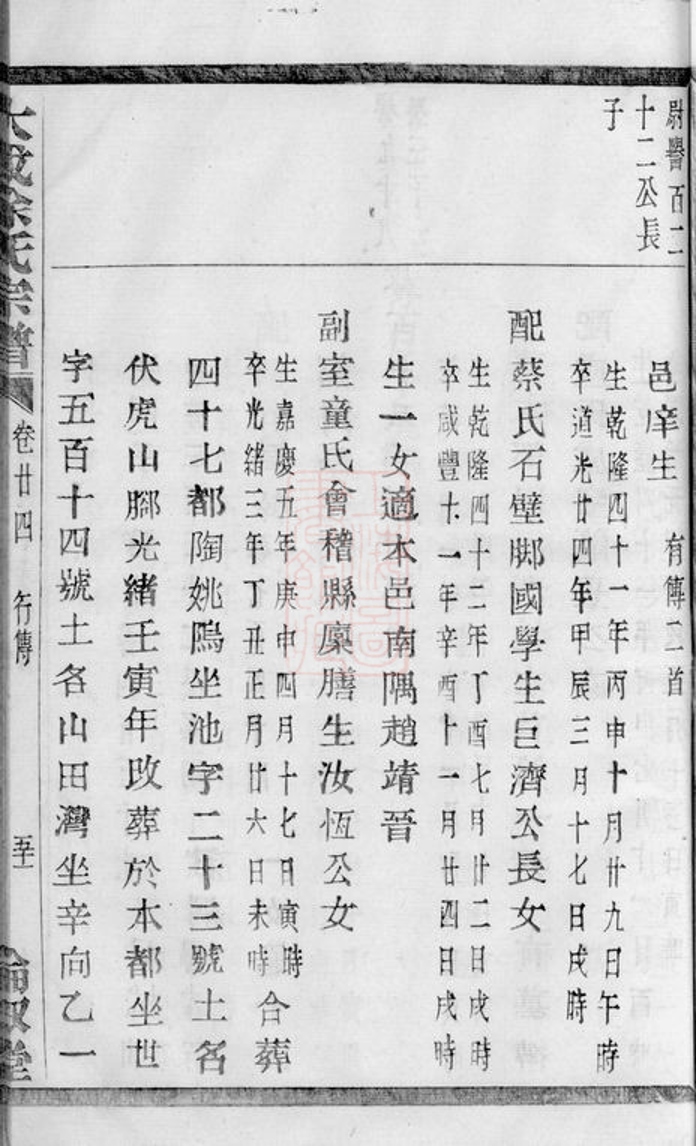 尉譽百二
十二公長
子
邑庠生
有傳二首
生乾隆四十一年丙申十月廿九日午時
卒道光廿四年甲辰三月十七日戌時
配蔡氏石壁腳國學生巨濟公長女
生乾隆四十二年丁酉七月廿二日戌時
卒咸豐十一年辛酉十一月廿四日戌時
生一女適本邑南隅趙靖晉
副室童氏會稽縣廩膳生汝恆公女
生嘉慶五年庚申四月十七日寅時
卒光緒三年丁丑正月廿六日未時
合葬
四十七都陶姚隖坐池字二十三號土名
伏虎山腳光緒壬寅年改葬於本都坐世
字五百十四號土名山田灣坐辛向乙一
徐氏宗譜
卷廿四
行傳
倫敘堂